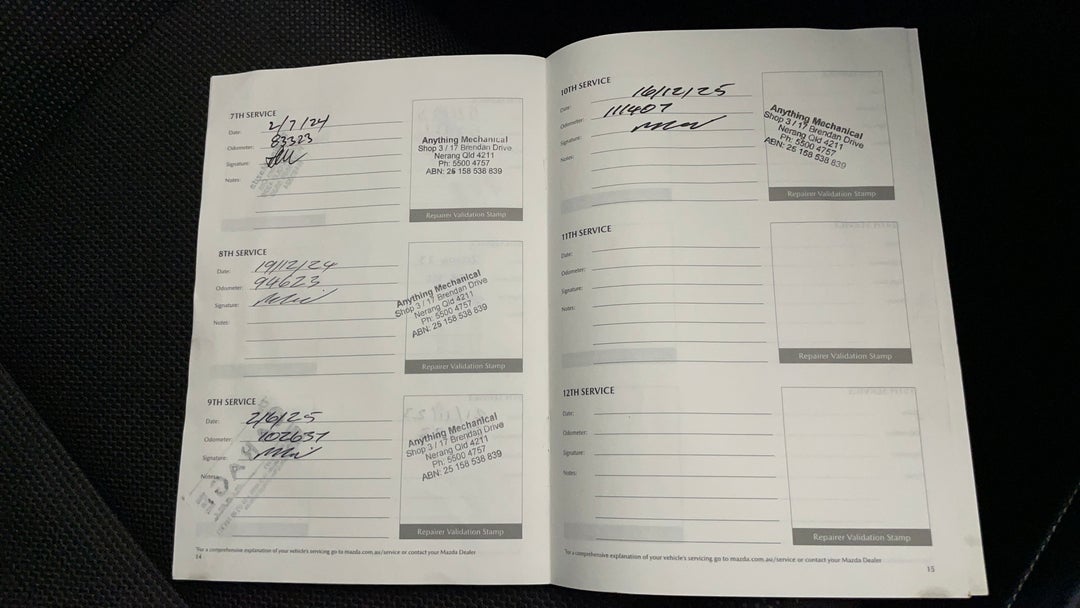 7TH SERVICE
Date: 2/7/24
Odometer: 83323
Signature:
Notes:
Anything Mechanical
Shop 3 / 17 Brendan Drive
Nerang Qld 4211
Ph: 5500 4757
ABN: 25 158 538 839
Repairer Validation Stamp
8TH SERVICE
Date: 19/12/24
Odometer: 94623
Signature:
Notes:
Anything Mechanical
Shop 3 / 17 Brendan Drive
Nerang Qld 4211
Ph: 5500 4757
ABN: 25 158 538 839
Repairer Validation Stamp
9TH SERVICE
Date: 2/6/25
Odometer: 102657
Signature:
Notes:
Anything Mechanical
Shop 3 / 17 Brendan Drive
Nerang Qld 4211
Ph: 5500 4757
ABN: 25 158 538 839
Repairer Validation Stamp
*For a comprehensive explanation of your vehicle's servicing go to mazda.com.au/service or contact your Mazda Dealer
14
10TH SERVICE
Date: 16/12/25
Odometer: 111407
Signature:
Notes:
Anything Mechanical
Shop 3 / 17 Brendan Drive
Nerang Qld 4211
Ph: 5500 4757
ABN: 25 158 538 839
Repairer Validation Stamp
11TH SERVICE
Date:
Odometer:
Signature:
Notes:
Repairer Validation Stamp
12TH SERVICE
Date:
Odometer:
Signature:
Notes:
Repairer Validation Stamp
*For a comprehensive explanation of your vehicle's servicing go to mazda.com.au/service or contact your Mazda Dealer
15